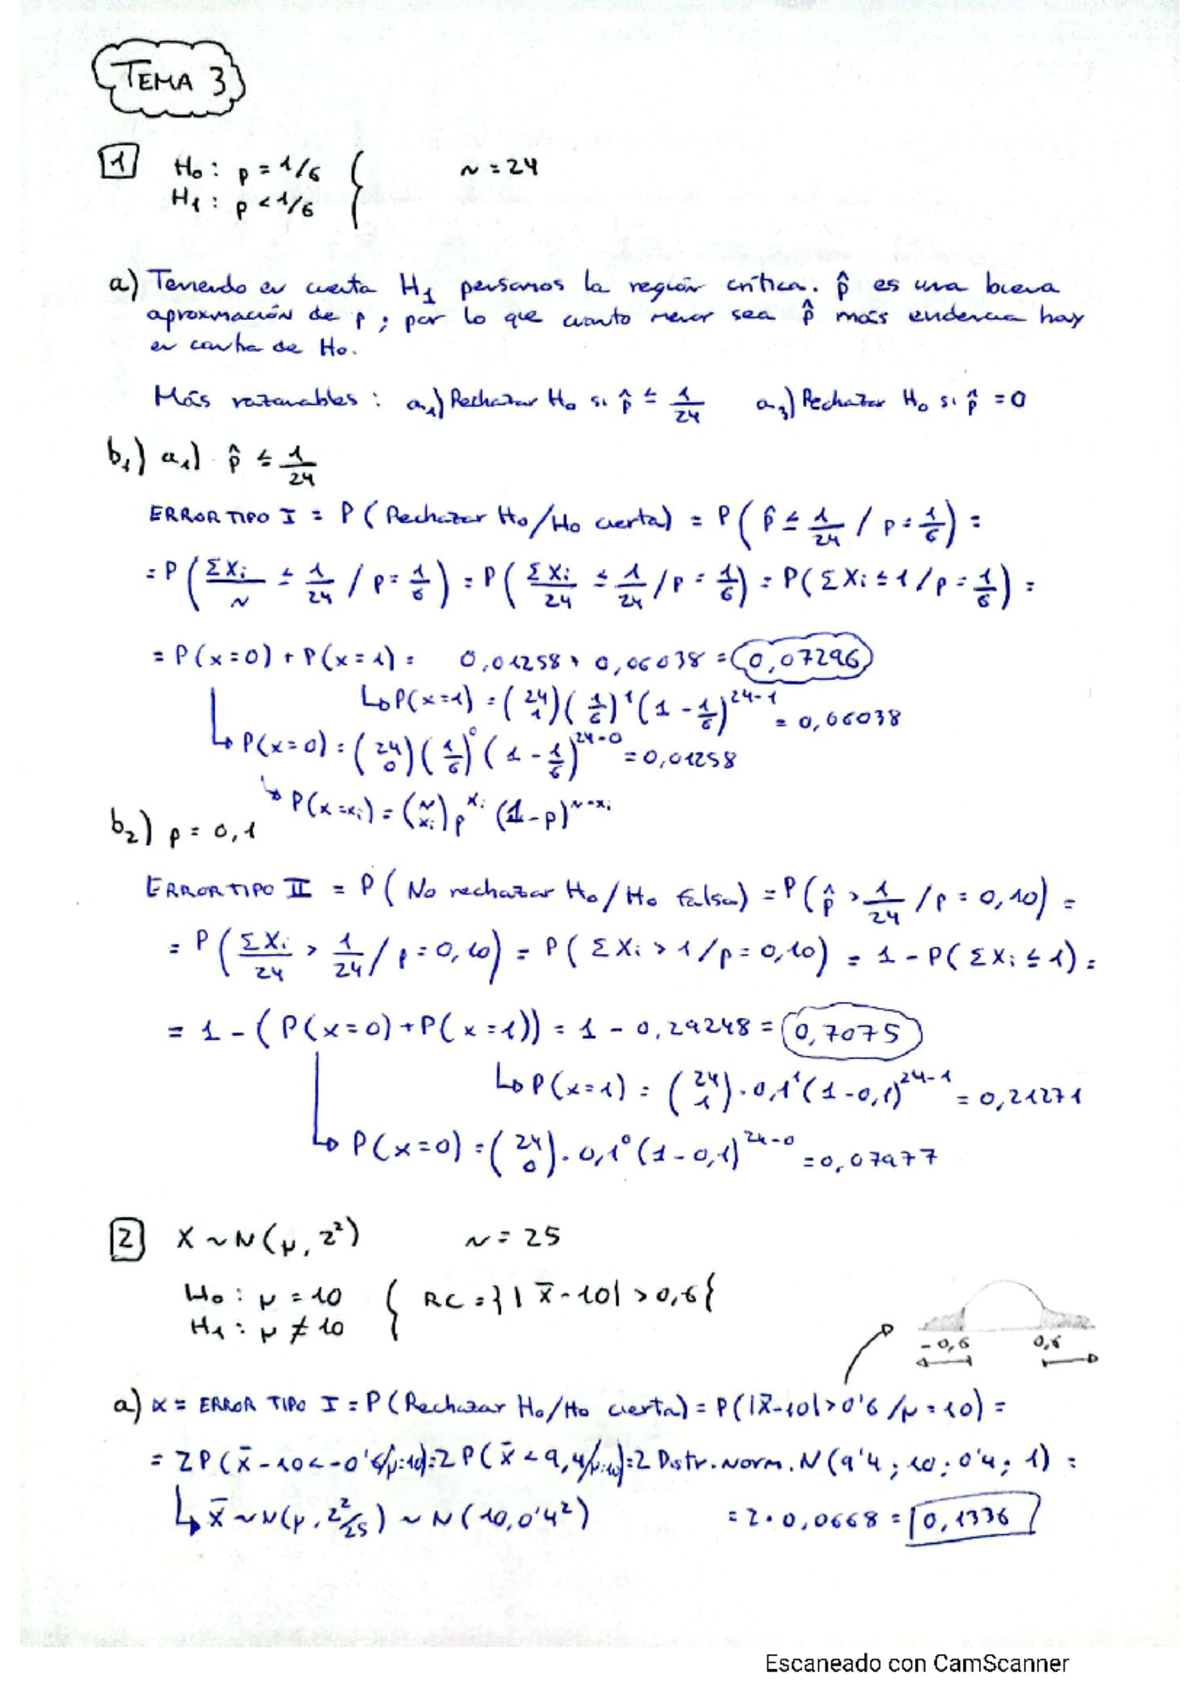 TEMA 3
1 H₀: p = 1/6 } n = 24
H₁: p < 1/6
a) Teniendo en cuenta H₁ pensamos la región crítica. p̂ es una buena
aproximación de p; por lo que cuanto menor sea p̂ más evidencia hay
en contra de H₀.
Más razonables: a₁) Rechazar H₀ si p̂ ≤ 1/24 a₃) Rechazar H₀ si p̂ = 0
b₁) a₁) p̂ ≤ 1/24
ERROR TIPO I = P(Rechazar H₀/H₀ cierta) = P(p̂ ≤ 1/24 / p = 1/6) =
= P(ΣXi/n ≤ 1/24 / p = 1/6) = P(ΣXi/24 ≤ 1/24 / p = 1/6) = P(ΣXi ≤ 1 / p = 1/6) =
= P(x=0) + P(x=1) = 0,01258 + 0,06038 = 0,07296
↳ P(x=1) = (24 1)(1/6)¹(1 - 1/6)²⁴⁻¹ = 0,06038
↳ P(x=0) = (24 0)(1/6)⁰(1 - 1/6)²⁴⁻⁰ = 0,01258
↳ P(x=xi) = (n xi) p^xi (1-p)^n-xi
b₂) p = 0,1
ERROR TIPO II = P(No rechazar H₀/H₀ falsa) = P(p̂ > 1/24 / p = 0,10) =
= P(ΣXi/24 > 1/24 / p = 0,10) = P(ΣXi > 1 / p = 0,10) = 1 - P(ΣXi ≤ 1) =
= 1 - (P(x=0) + P(x=1)) = 1 - 0,29248 = 0,7075
↳ P(x=1) = (24 1) · 0,1¹(1-0,1)²⁴⁻¹ = 0,21271
↳ P(x=0) = (24 0) · 0,1⁰(1-0,1)²⁴⁻⁰ = 0,07977
2 X ~ N(μ, 2²) n = 25
H₀: μ = 10 } RC = {|x̄ - 10| > 0,6}
H₁: μ ≠ 10
-0,6 0,6
a) α = ERROR TIPO I = P(Rechazar H₀/H₀ cierta) = P(|x̄-10| > 0'6 / μ = 10) =
= 2P(x̄ - 10 < -0'6/μ=10) = 2P(x̄ < 9,4/μ=10) = 2 Distr.norm.N(9'4; 10; 0'4; 1) =
↳ x̄ ~ N(μ, 2²/25) ~ N(10, 0'4²) = 2 · 0,0668 = 0,1336
Escaneado con CamScanner